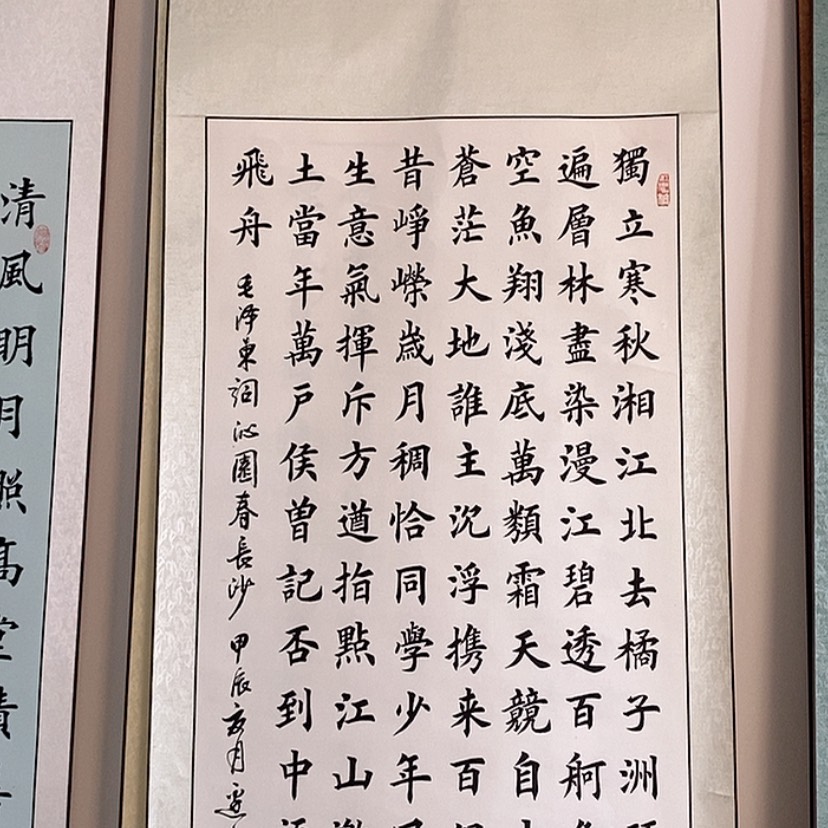 獨立寒秋湘江北去橘子洲
遍層林盡染漫江碧透百舸
空魚翔淺底萬類霜天競自
蒼茫大地誰主沉浮携来百
昔崢嶸歲月稠恰同學少年
生意氣揮斥方遒指點江山
土當年萬戶侯曾記否到中
飛舟
毛泽东詞沁園春長沙 甲辰亥月
清風明月照高堂積